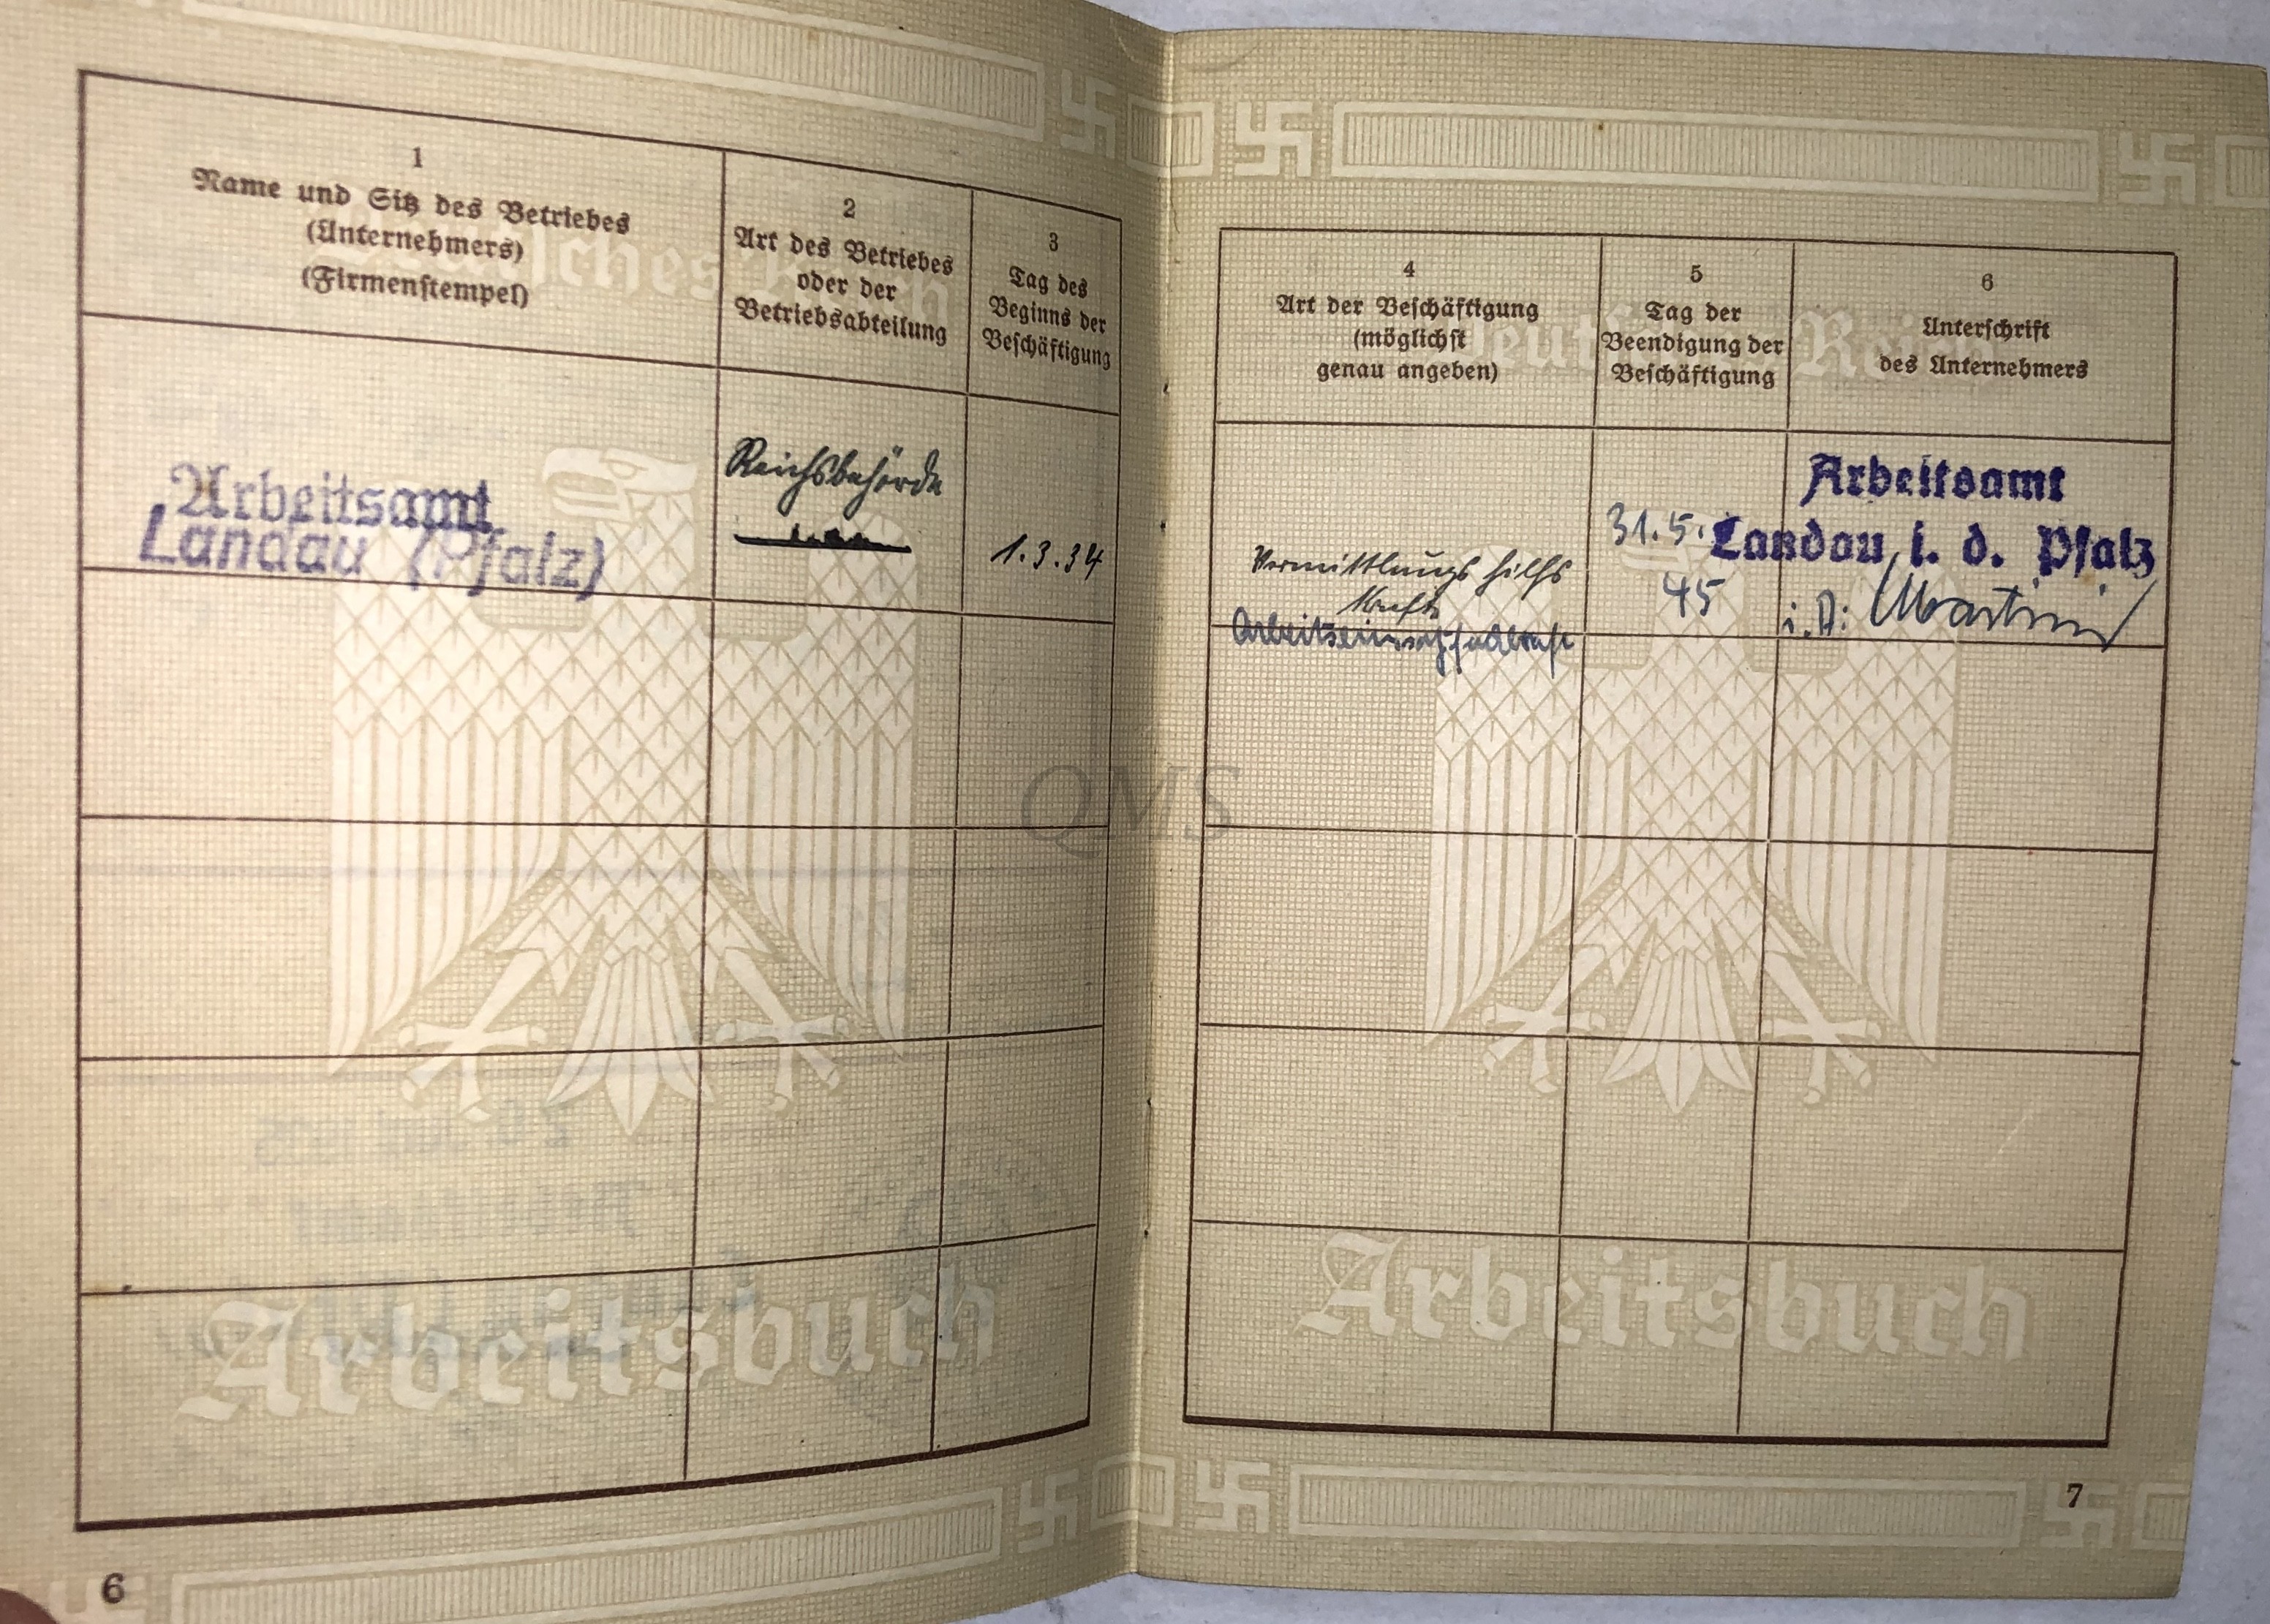 1
Name und Sitz des Betriebes
(Unternehmers)
(Firmenstempel)
2
Art des Betriebes
oder der
Betriebsabteilung
3
Tag des
Beginns der
Beschäftigung
Arbeitsamt
Landau (Pfalz)
Reichsbehörde
1.3.34
Arbeitsbuch
6
4
Art der Beschäftigung
(möglichst
genau angeben)
5
Tag der
Beendigung der
Beschäftigung
6
Unterschrift
des Unternehmers
Vermittlungshilfs
kraft
31.5.
45
Arbeitsamt
Landau, i. d. Pfalz
i.A: Martini
QMS
Arbeitsbuch
7